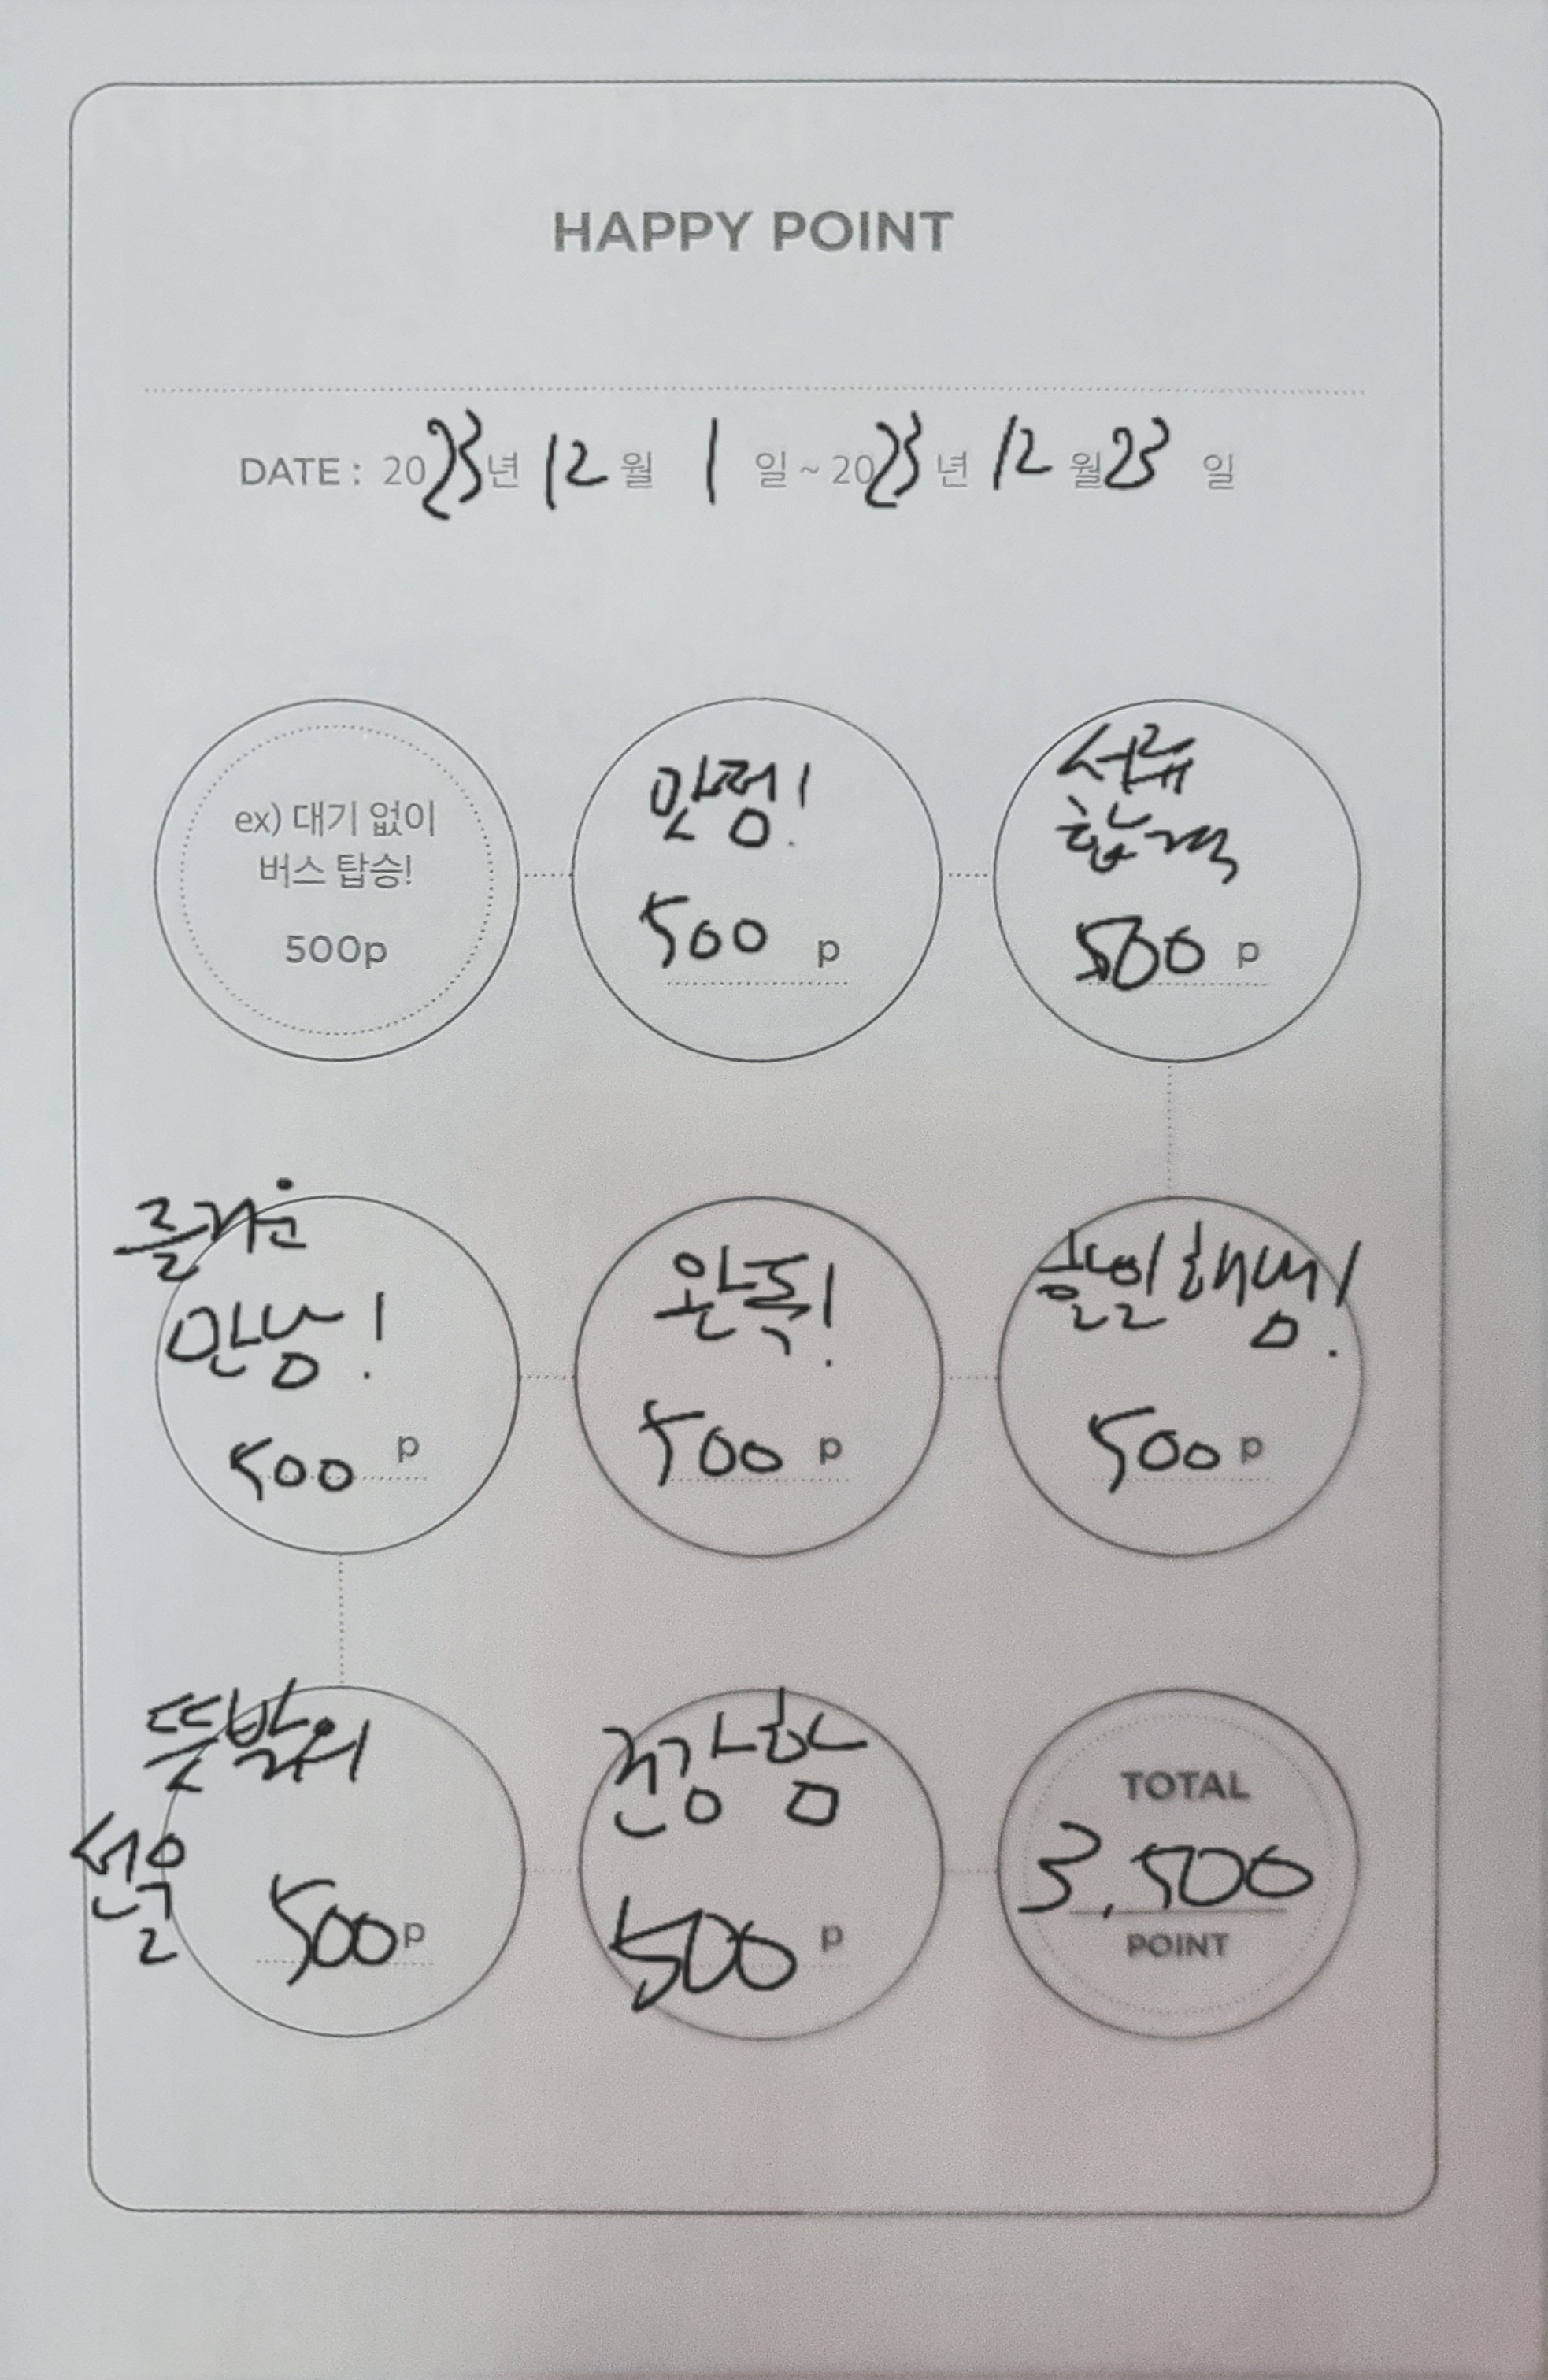 HAPPY POINT
DATE : 2023년 12월 1일 ~ 2023년 12월 23일
ex) 대기 없이
버스 탑승!
500p
만점!
500 p
서류
합격
500 p
즐거운
만남!
500 p
완독!
500 p
할일 해냄!
500 p
뜻밖의
선물
500 p
건강함
500 p
TOTAL
3,500
POINT